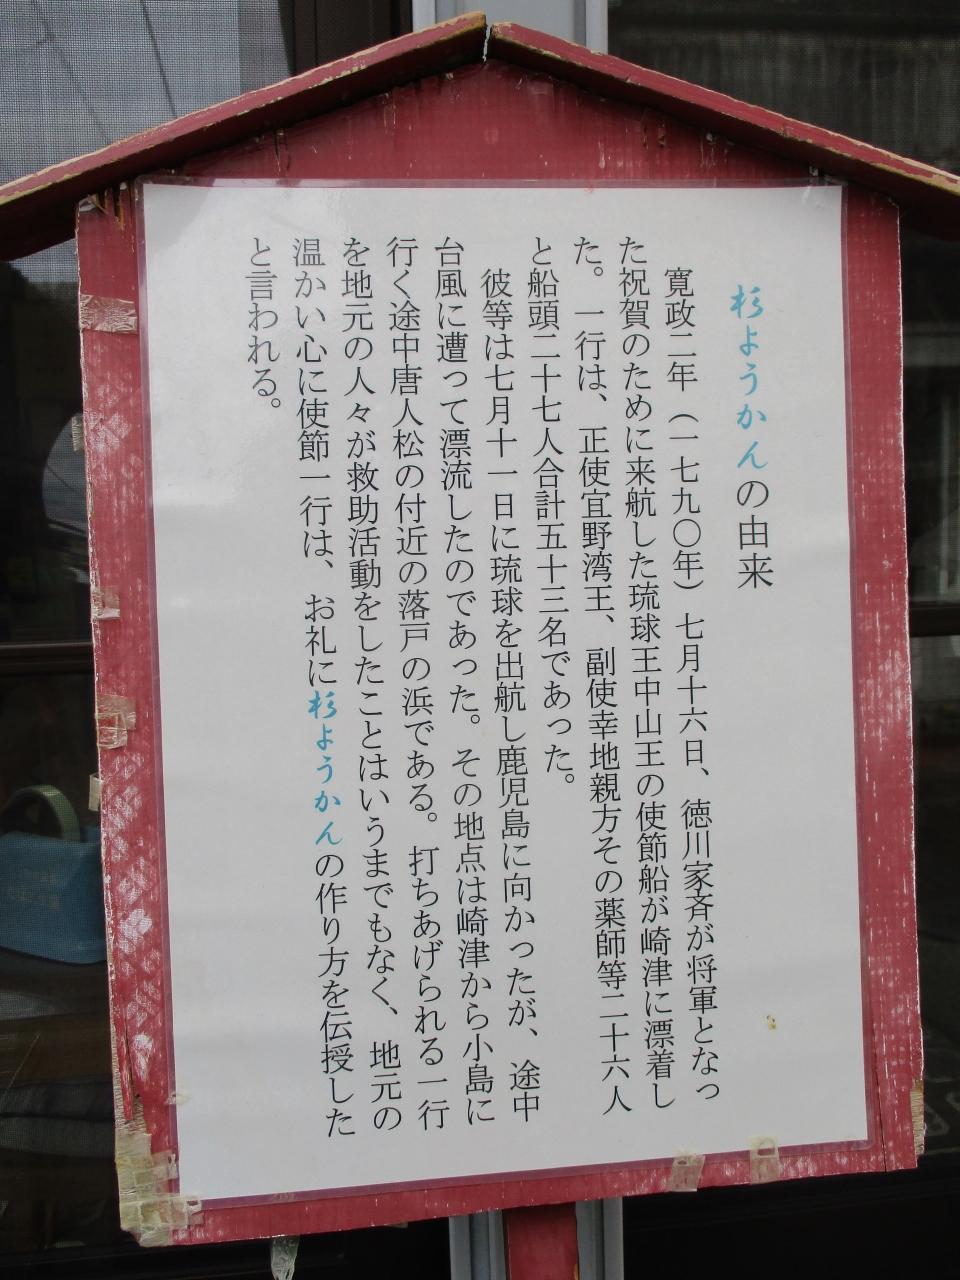 杉ようかんの由来
寛政二年（一七九〇年）七月十六日、徳川家斉が将軍となっ
た祝賀のために来航した琉球王中山王の使節船が崎津に漂着し
た。一行は、正使宜野湾王、副使幸地親方その薬師等二十六人
と船頭二十七人合計五十三名であった。
彼等は七月十一日に琉球を出航し鹿児島に向かったが、途中
台風に遭って漂流したのであった。その地点は崎津から小島に
行く途中唐人松の付近の落戸の浜である。打ちあげられる一行
を地元の人々が救助活動をしたことはいうまでもなく、地元の
温かい心に使節一行は、お礼に杉ようかんの作り方を伝授した
と言われる。